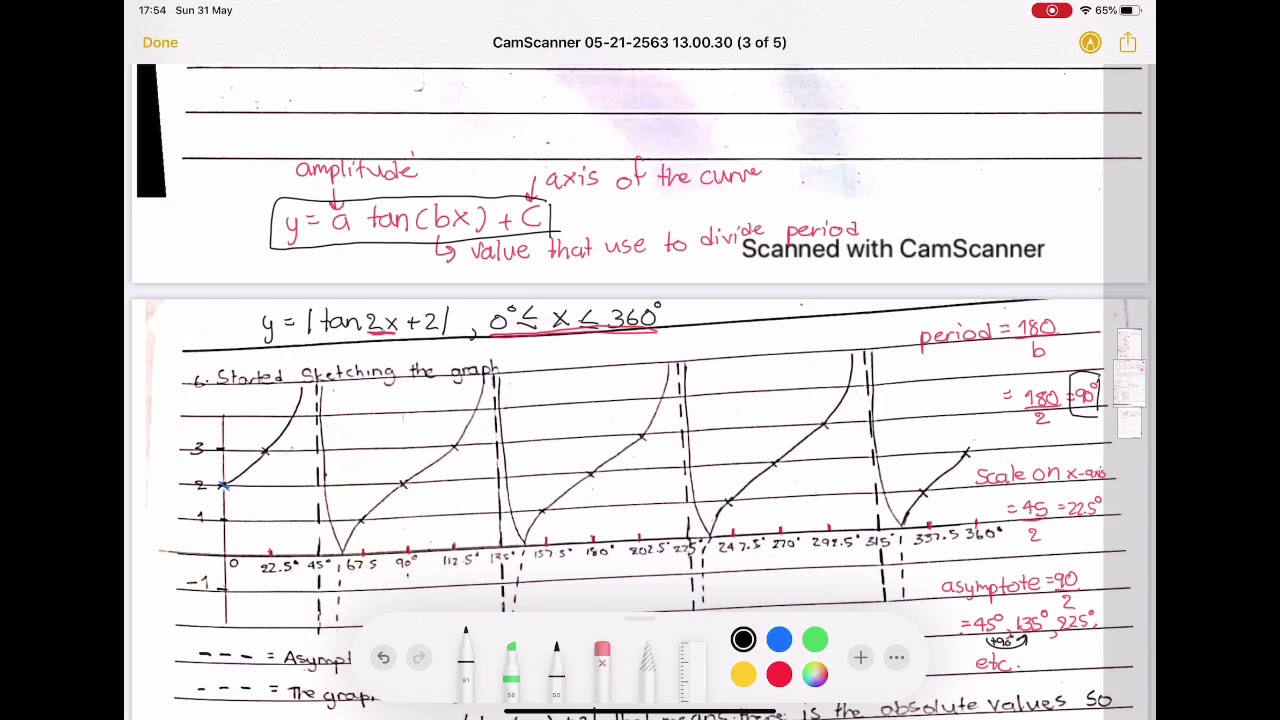 17:54 Sun 31 May
65%
Done
CamScanner 05-21-2563 13.00.30 (3 of 5)
amplitude
axis of the curve
y = a tan(bx) + C
value that use to divide period
Scanned with CamScanner
y = |tan 2x + 2| , 0° ≤ x ≤ 360°
period = 180
b
= 180 = 90°
2
6. Started sketching the graph
3
2
1
-1
0 22.5° 45° 67.5 90° 112.5° 135° 157.5° 180° 202.5° 225° 247.5° 270° 292.5° 315° 337.5 360°
Scale on x-axis
= 45 = 22.5°
2
asymptote = 90
2
= 45°, 135°, 225°,
+90°
etc.
--- = Asympt
--- = The grap
that means there is the absolute values so
91
50
50